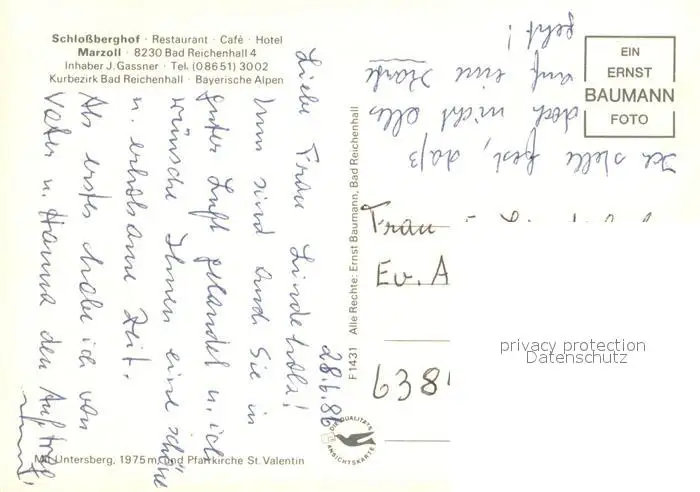 Schloßberghof · Restaurant · Café · Hotel
Marzoll · 8230 Bad Reichenhall 4
Inhaber J. Gassner · Tel. (08651) 3002
Kurbezirk Bad Reichenhall · Bayerische Alpen
28.6.86
Liebe Frau Lindetrola!
Nun sind auch Sie in
guter Luft gelandet u. ich
wünsche Ihnen eine schöne
u. erholsame Zeit.
Als erstes habe ich von
Vater u. Hanna den Auftrag
Ich stelle fest, daß
doch nicht alles
auf eine Karte
geht!
EIN
ERNST
BAUMANN
FOTO
Frau
Ev. A
638
F1431 Alle Rechte: Ernst Baumann, Bad Reichenhall
DIE QUALITÄTS
ANSICHTSKARTE
Mit Untersberg, 1975 m, und Pfarrkirche St. Valentin
privacy protection
Datenschutz